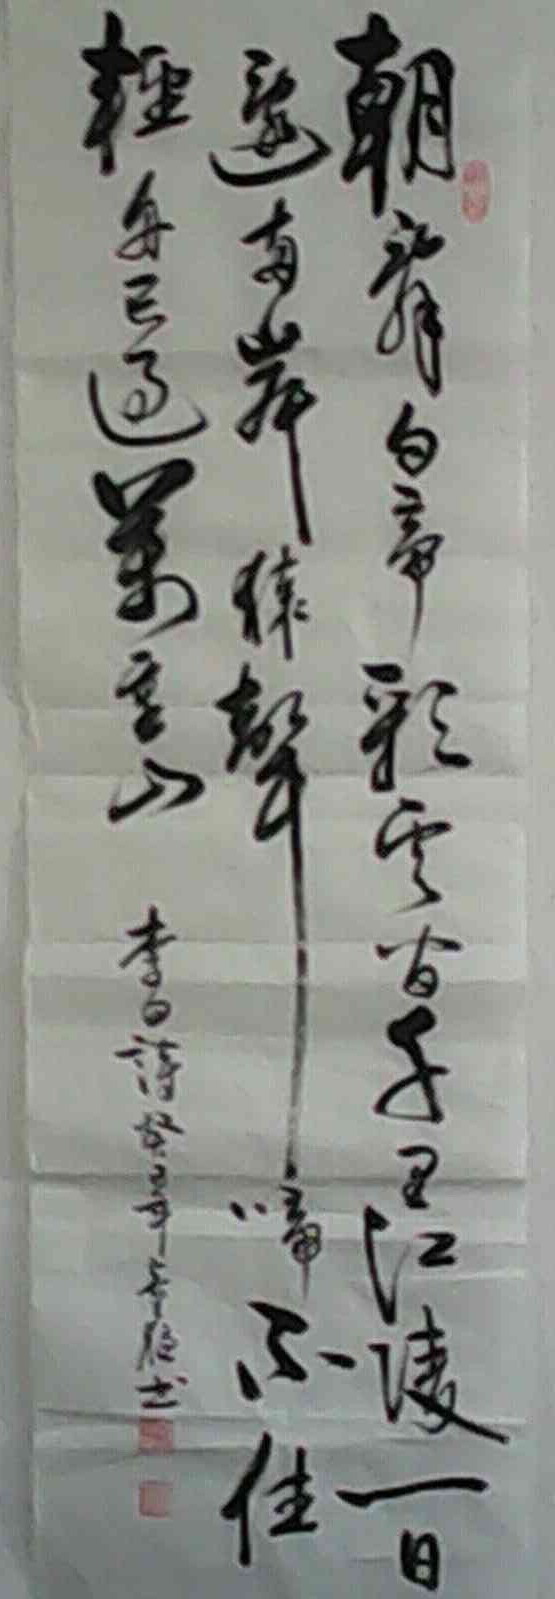 朝辭白帝彩雲間千里江陵一日
還兩岸猿聲啼不住
輕舟已過萬重山
李白詩癸
書